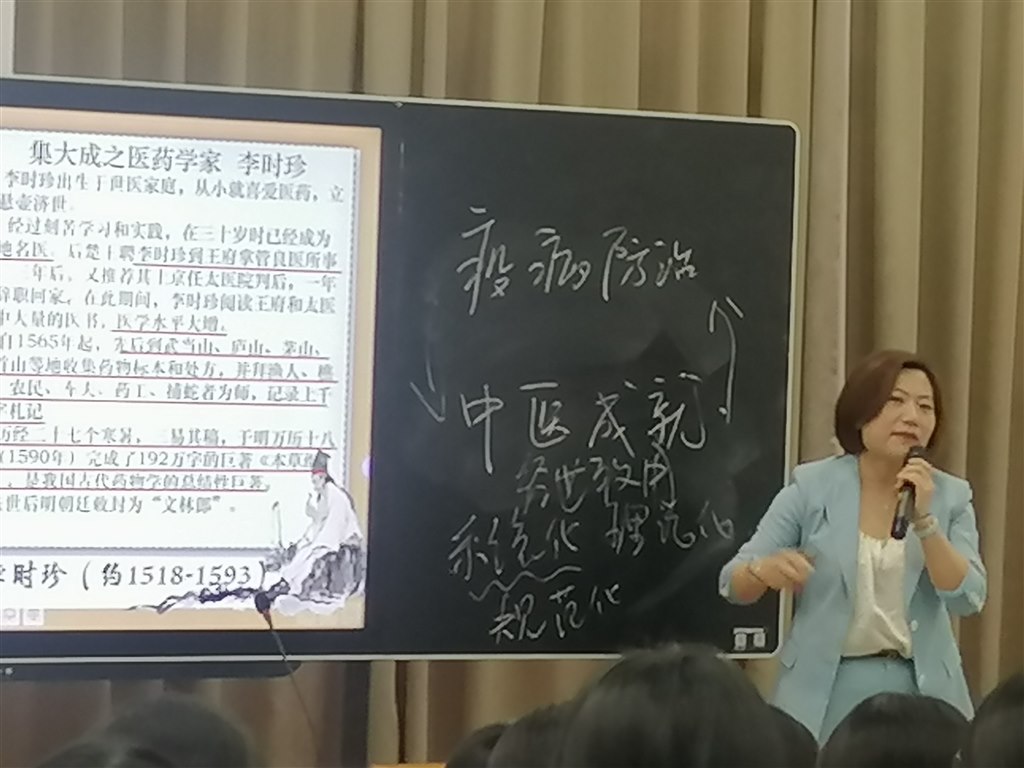 集大成之医药学家 李时珍
李时珍出生于世医家庭，从小就喜爱医药，立
悬壶济世。
经过刻苦学习和实践，在三十岁时已经成为
地名医。后楚王聘李时珍到王府掌管良医所事
三年后，又推荐其上京任太医院判后，一年
辞职回家。在此期间，李时珍阅读王府和太医
中大量的医书，医学水平大增。
自1565年起，先后到武当山、庐山、茅山、
首山等地收集药物标本和处方，并拜渔人、樵
农民、车夫、药工、捕蛇者为师，记录上千
字札记
历经二十七个寒暑，三易其稿，于明万历十八
(1590年) 完成了192万字的巨著《本草纲
，是我国古代药物学的总结性巨著。
去世后明朝廷敕封为“文林郎”。
时珍 (约1518-1593)
疫病防治
中医成就
经世致用
系统化 理范化
规范化